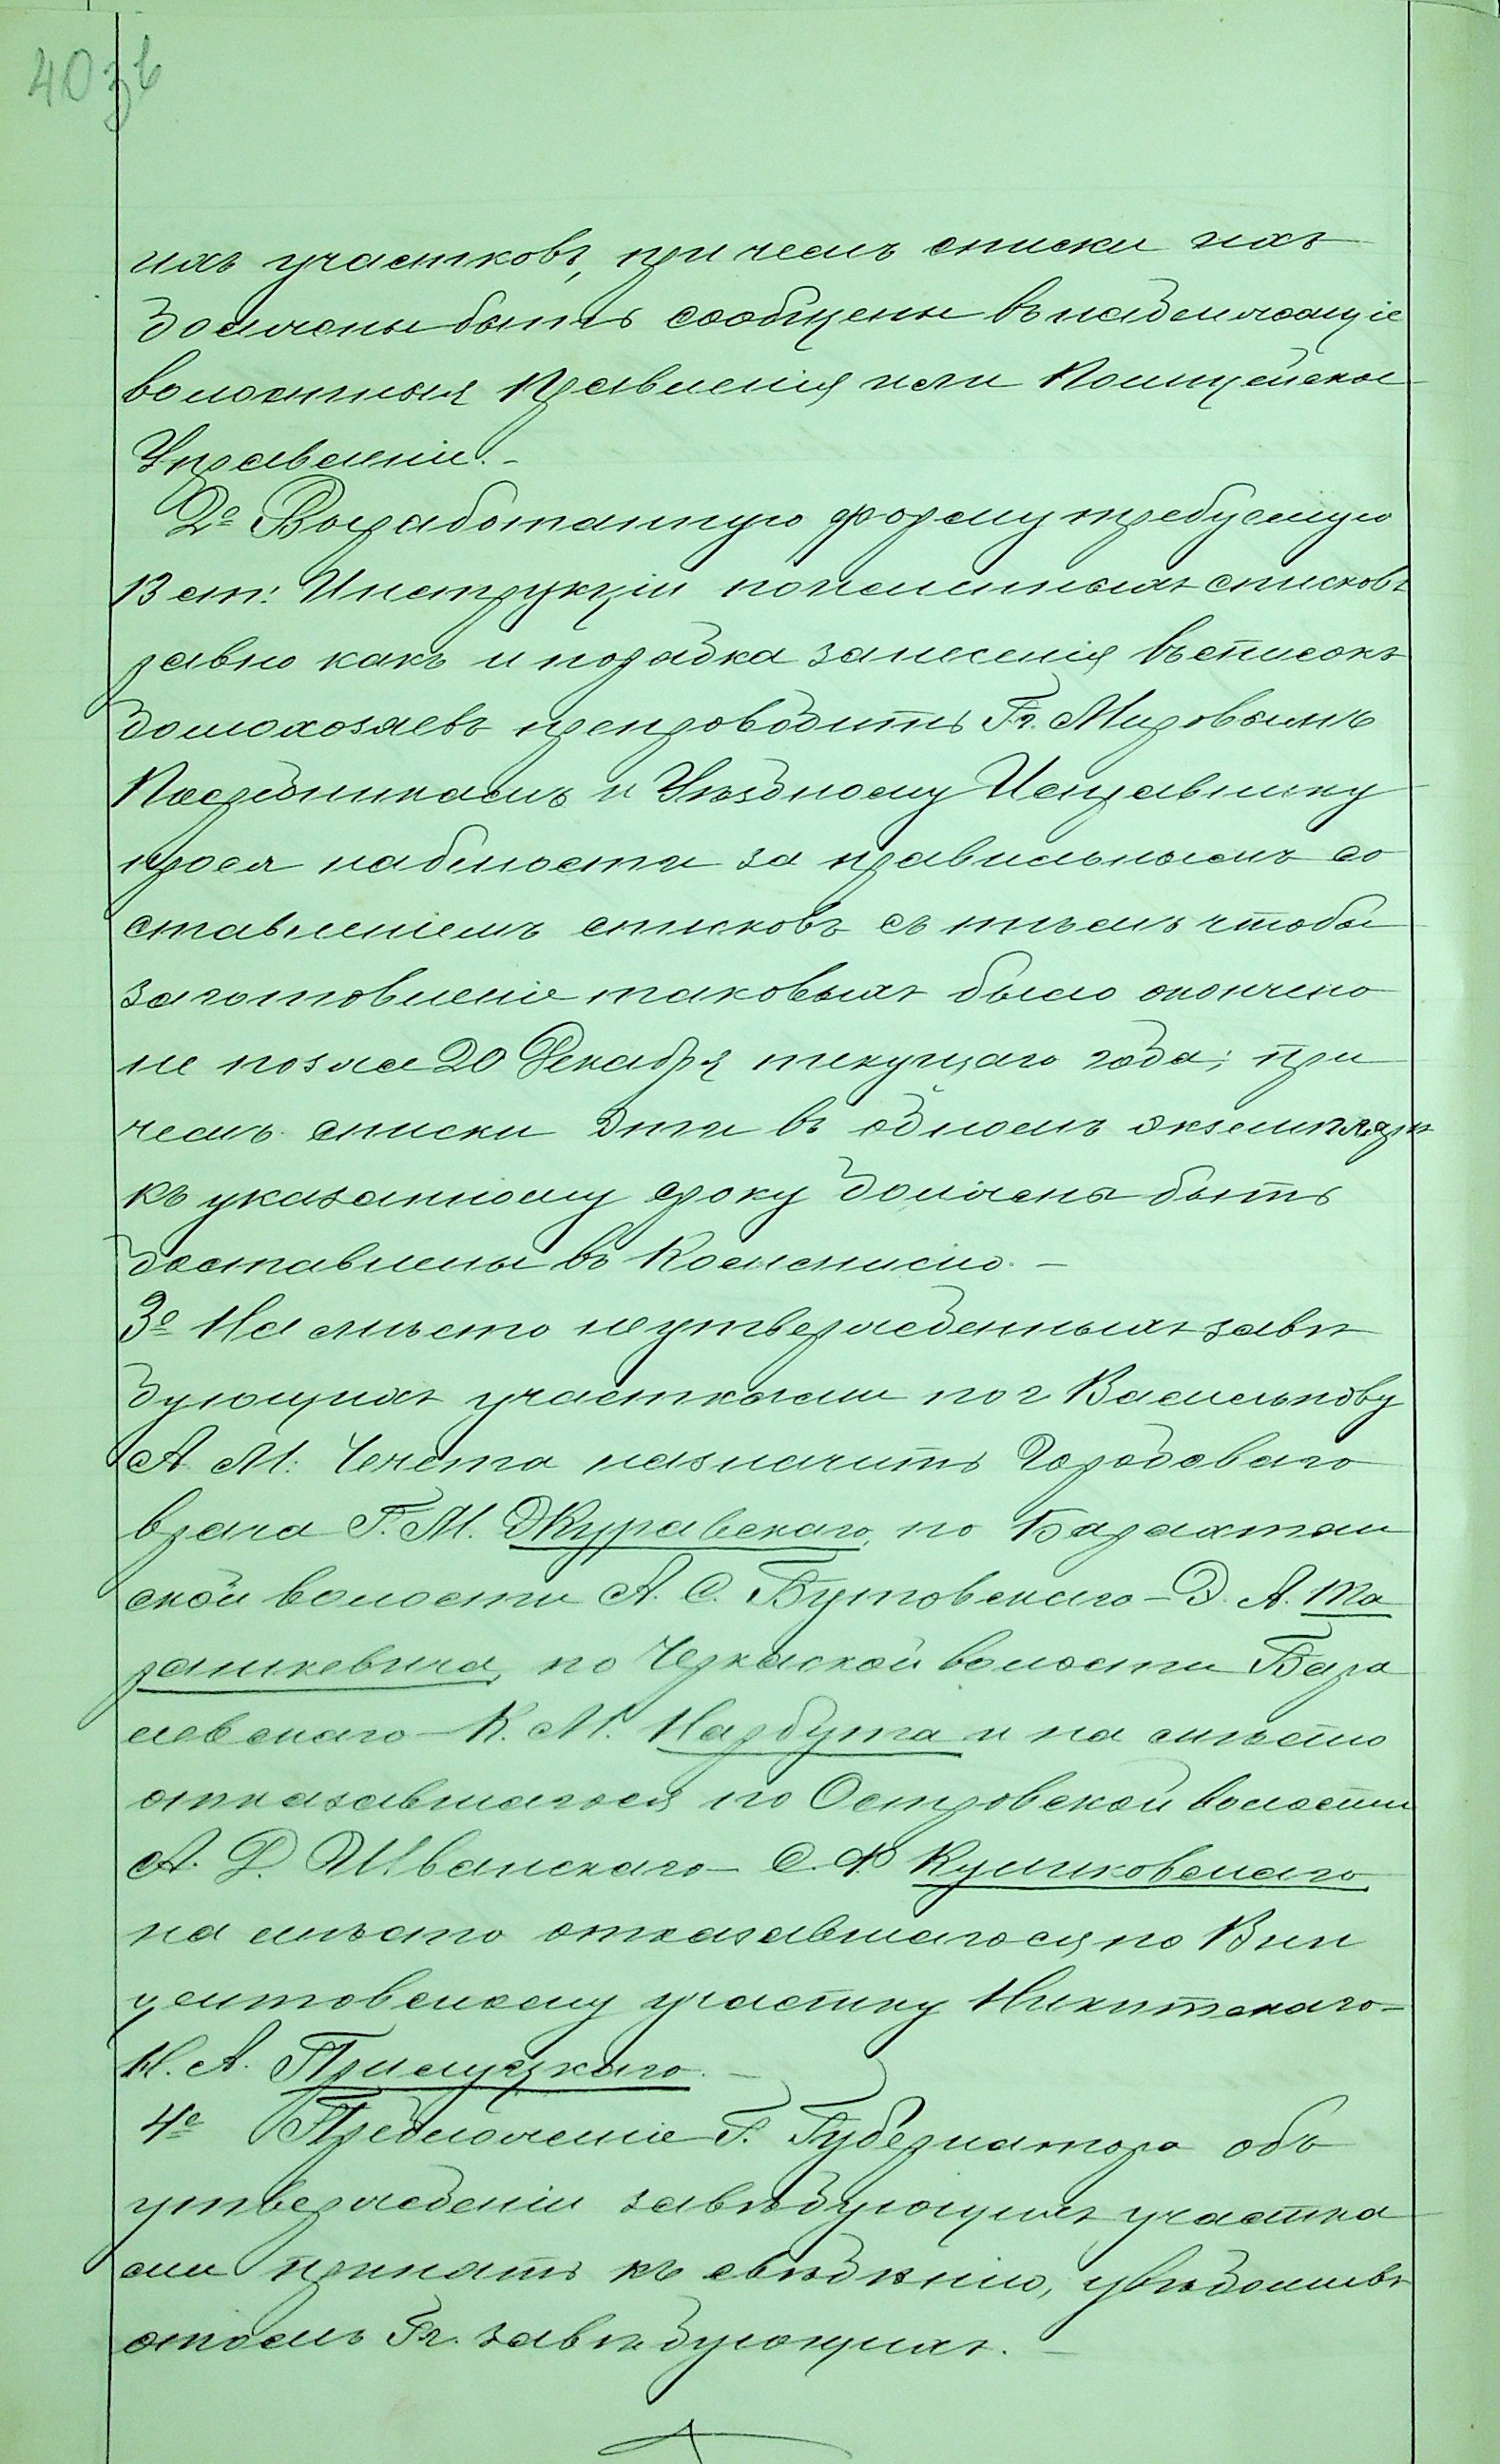 40 зв
ихъ участковъ, при чемъ списки ихъ
должны быть сообщены въ надлежащіе
волостныя Правленія или Полицейское
Управленіе. –
2º Выработанную форму требуемую
13 ст: Инструкціи поименныхъ списковъ
равно какъ и порядка занесенія въ списокъ
домохозяевъ препроводить Гг. Мировымъ
Посредникамъ и Уѣздному Исправнику
прося наблюсти за правильнымъ со
ставленіемъ списковъ съ тѣмъ чтобы
заготовленіе таковыхъ было окончено
не позже 20 Декабря текущаго года; при
чемъ списки эти въ одномъ экземплярѣ
къ указанному сроку должны быть
доставлены въ Коммисію. –
3º На мѣсто неутвержденныхъ завѣ
дующихъ участками по г. Василькову
А. М. назначить Городоваго
врача Г. М. Журавскаго, по Барахтян
ской волости А. С. Бутовскаго – Э. А. Та
рашкевича, по Черкаской волости Бара
невскаго – К. М. Нарбута и на мѣсто
отказавшагося по Островской волости
А. Д. Иванскаго – С. Ф. Куликовскаго
на мѣсто отказавшагося по Вин
центовскому участку Никитскаго –
Н. А. Прилуцкаго. –
4º Предложеніе Г. Губернатора объ
утвержденіи завѣдующихъ участка
ми принять къ свѣдѣнію, увѣдомивъ
о томъ Гг. завѣдующихъ. –